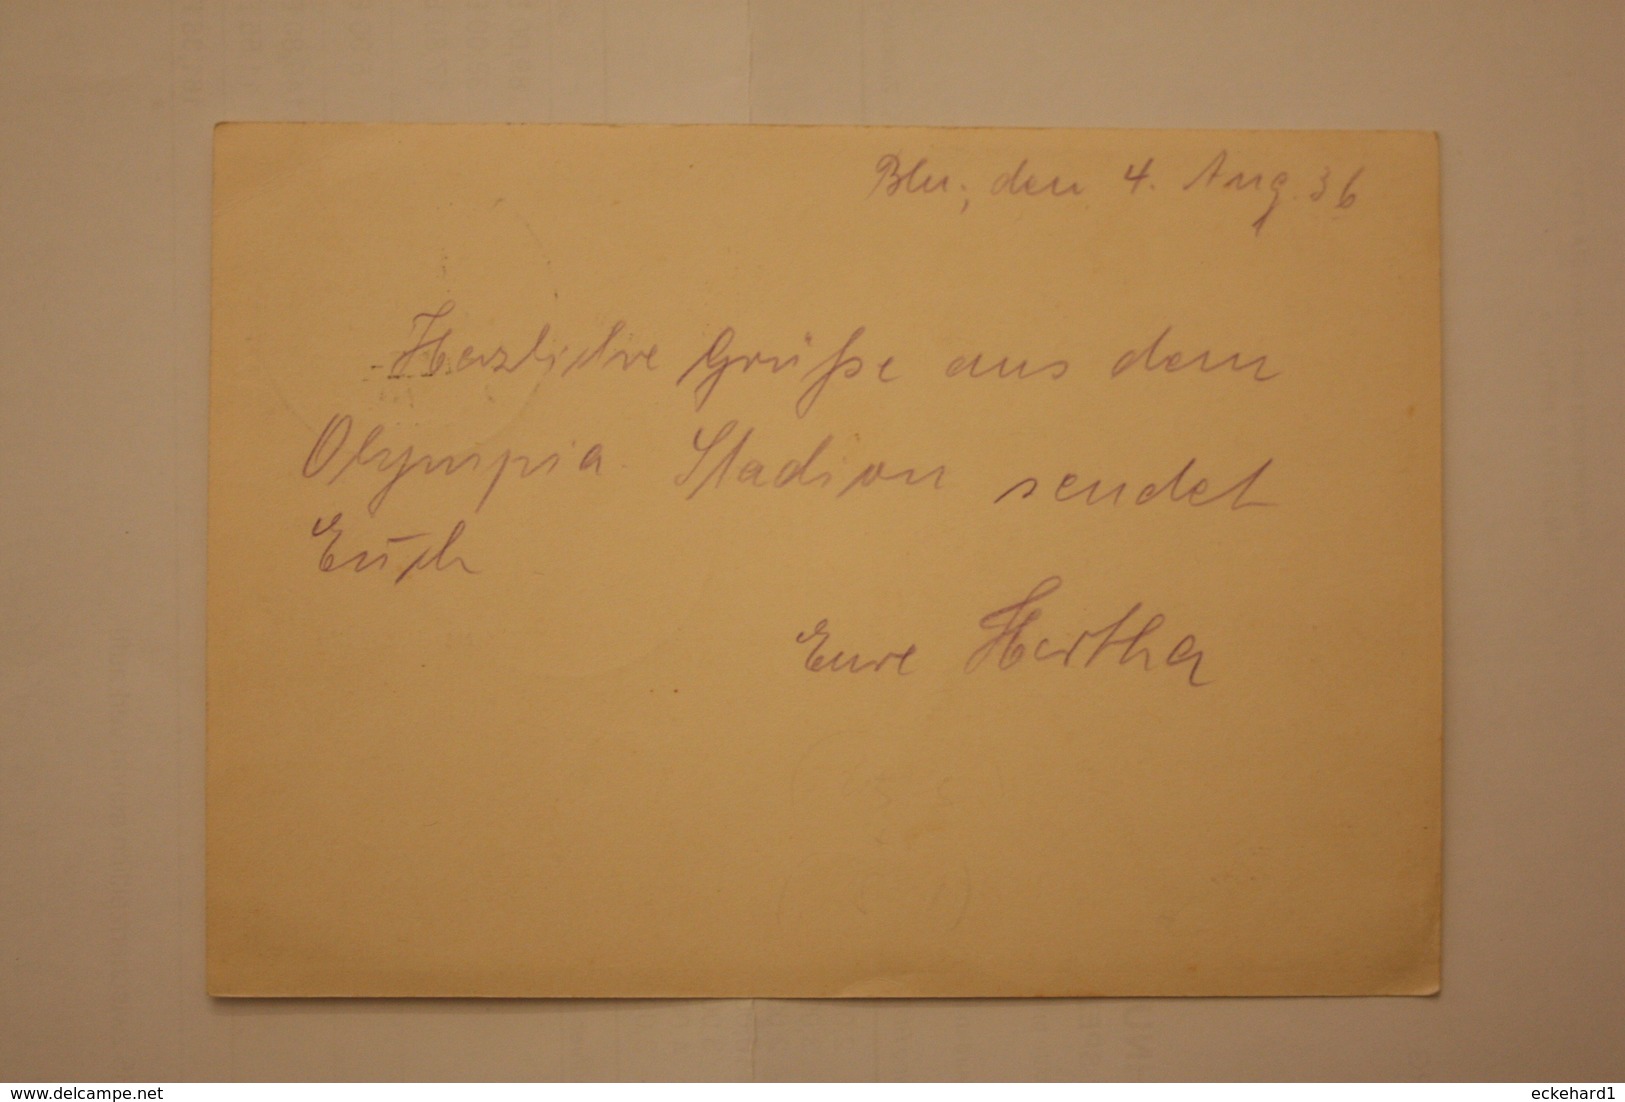 Bln., den 4. Aug. 36
Herzliche Grüße aus dem
Olympia Stadion sendet
Euch
Eure Hertha
www.delcampe.net
eckehard1